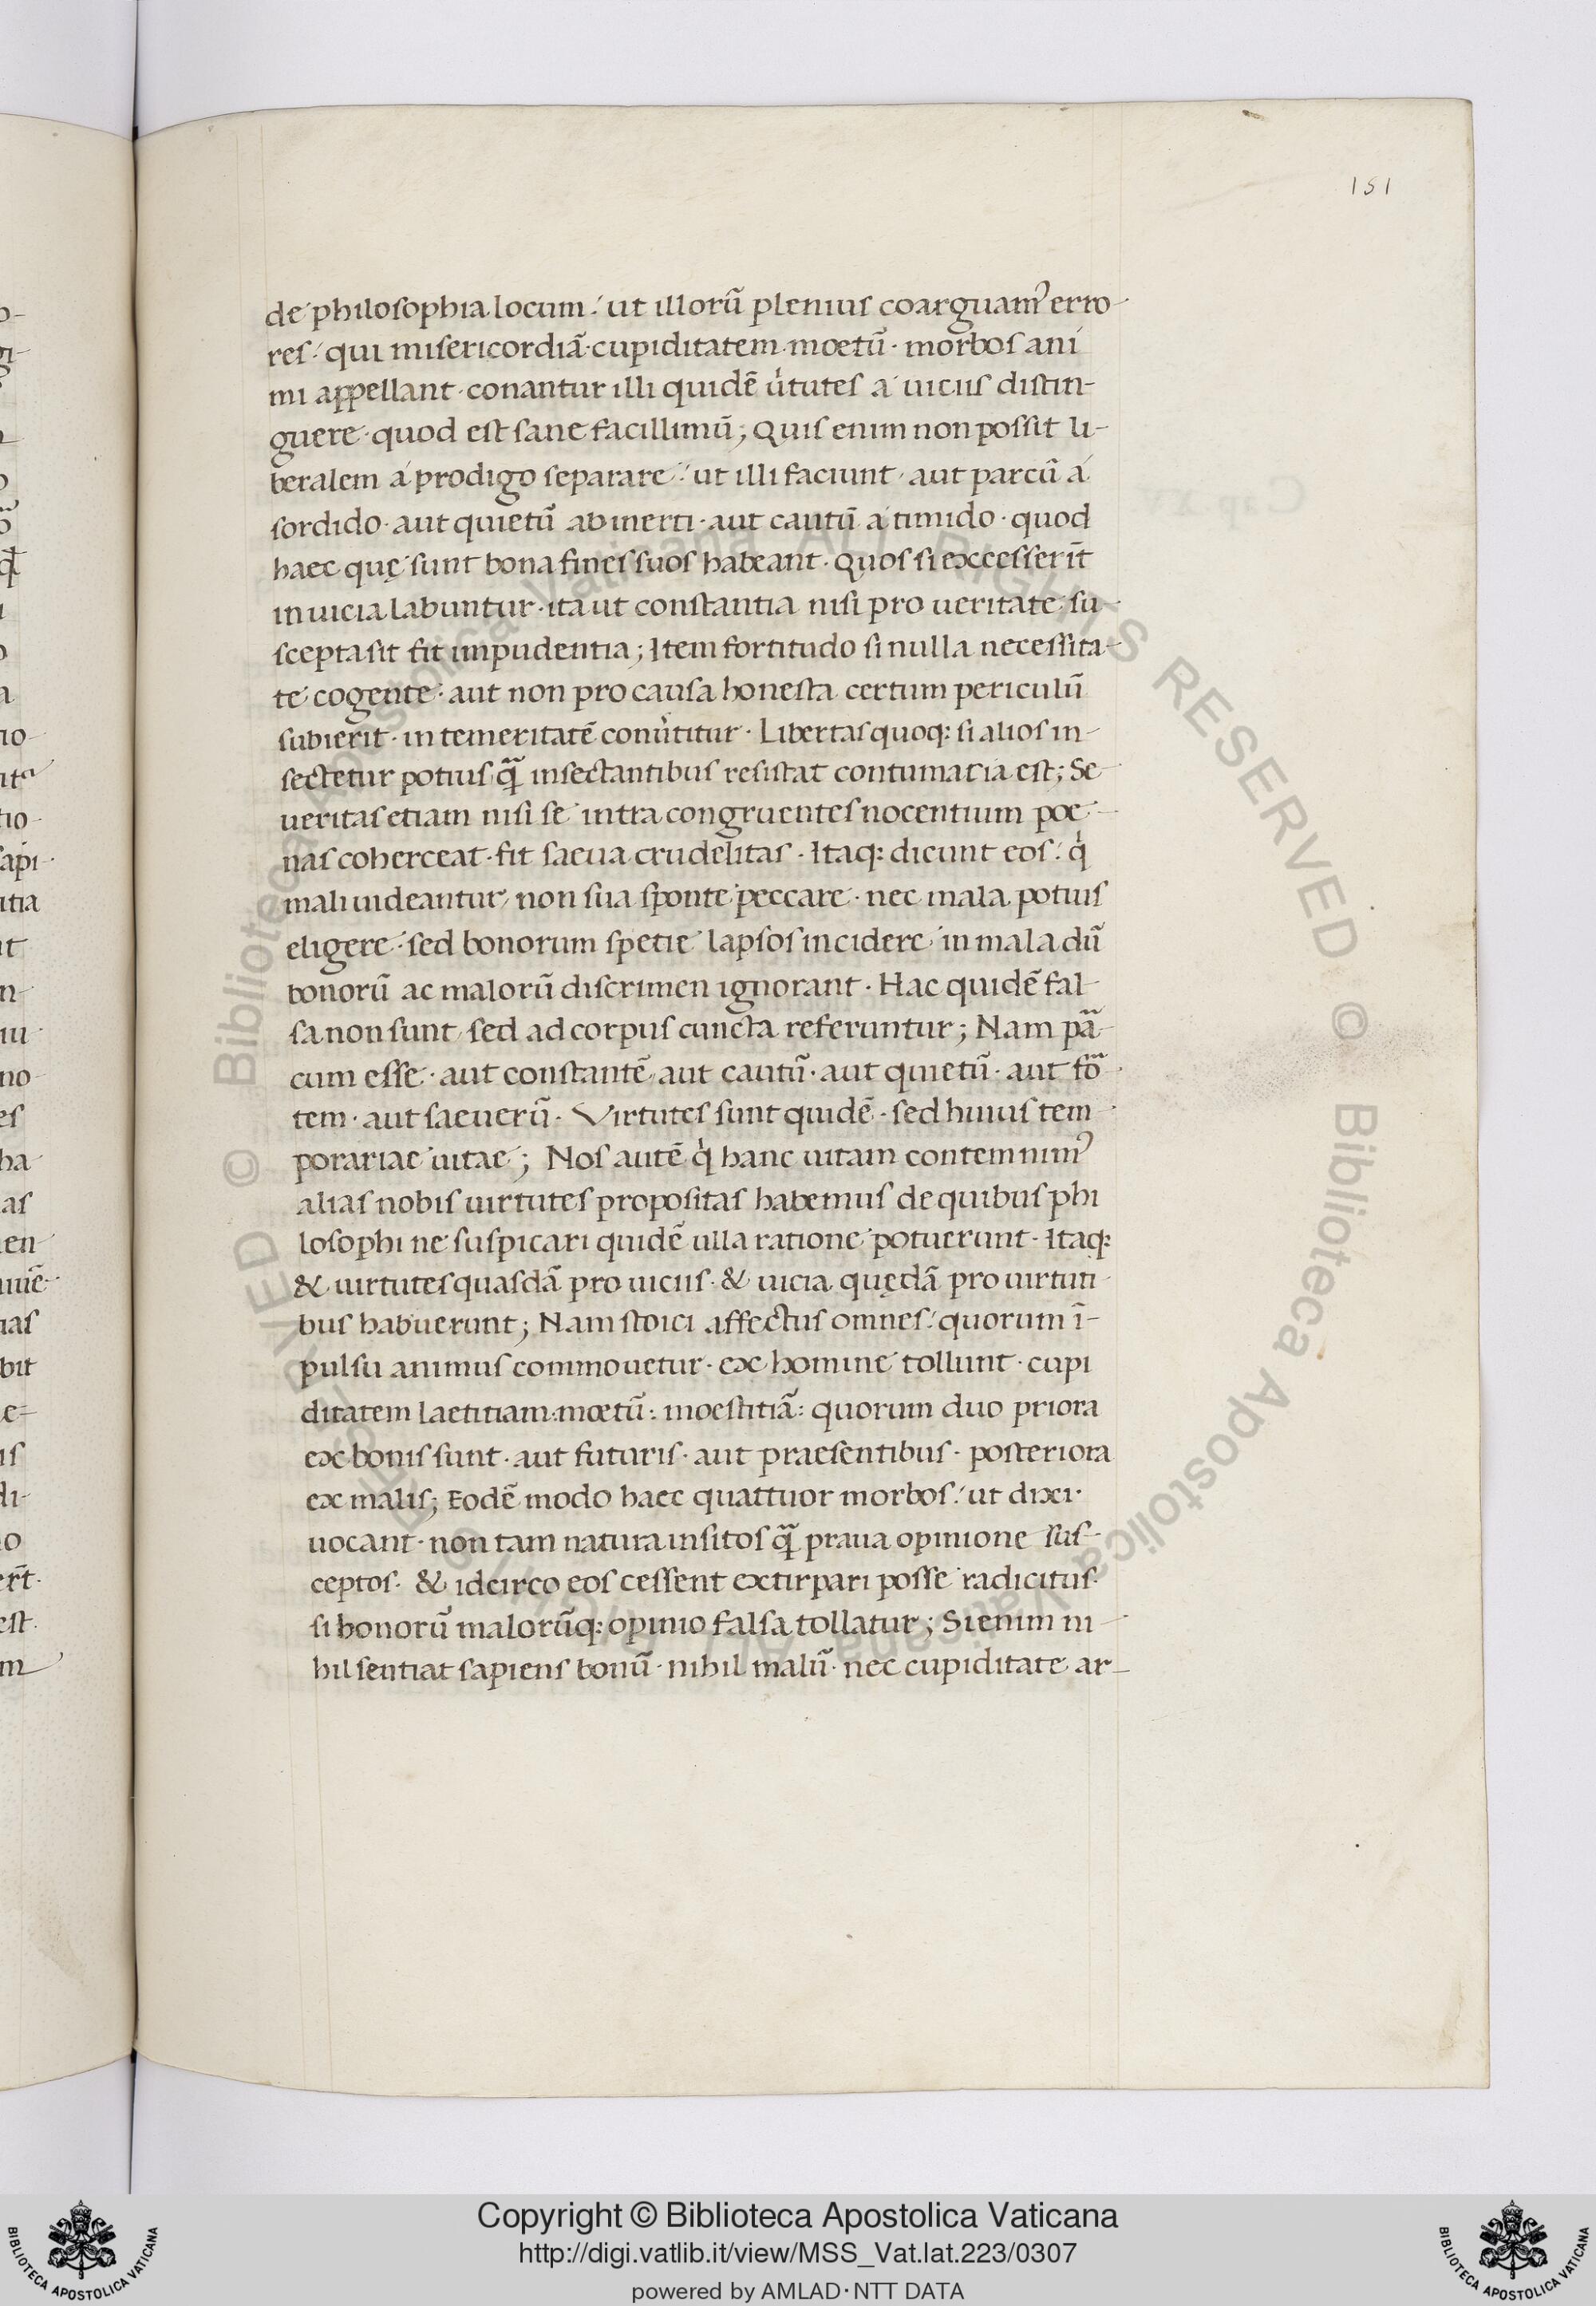 151
de philosophia locum: ut illorũ plenius coarguam᾽ erro-
res: qui misericordiã·cupiditatem·moetũ· morbos ani
mi appellant·conantur illi quidẽ ũtutes a uiciis distin-
guere·quod est sane facillimũ; Quis enim non possit li-
beralem a prodigo separare: ut illi faciunt·aut parcũ a
sordido·aut quietũ ab inerti·aut cautũ a timido·quod
haec quę sunt bona fines suos habeant·Quos si excesserĩt
in uicia labuntur·ita ut constantia nisi pro ueritate su-
scepta sit fit impudentia; Item fortitudo si nulla necessita-
te cogente·aut non pro causa honesta certum periculũ
subierit·in temeritatẽ conũtitur·Libertas quoq: si alios in-
sectetur potius q̃ insectantibus resistat contumatia est; Se-
ueritas etiam nisi se intra congruentes nocentium poe-
nas coherceat·fit saeua crudelitas·Itaq: dicunt eos: q̇
mali uideantur, non sua sponte peccare·nec mala potius
eligere·sed bonorum spetie lapsos incidere in mala dũ
bonorũ ac malorũ discrimen ignorant·Hac quidẽ fal-
sa non sunt, sed ad corpus cuncta referuntur; Nam pã-
cum esse·aut constantẽ, aut cautũ·aut quietũ·aut fõ-
tem·aut saeuerũ·Virtutes sunt quidẽ·sed huius tem-
porariae uitae; Nos autẽ q̇ hanc uitam contemnim᾽
alias nobis uirtutes propositas habemus de quibus phi
losophi ne suspicari quidẽ ulla ratione potuerunt·Itaq:
& uirtutes quasdã pro uiciis·& uicia quędã pro uirtuti-
bus habuerunt; Nam stoici affectus omnes: quorum ĩ-
pulsu animus commouetur·ex homine tollunt·cupi
ditatem laetitiam·moetũ: moestitiã: quorum duo priora
ex bonis sunt·aut futuris·aut praesentibus·posteriora
ex malis; Eodẽ modo haec quattuor morbos: ut dixi·
uocant·non tam natura insitos q̃ praua opinione sus-
ceptos·& idcirco eos cessent extirpari posse radicitus·
si bonorũ malorũq: opinio falsa tollatur; Si enim ni-
hil sentiat sapiens bonũ·nihil malũ·nec cupiditate ar-
© Biblioteca Apostolica Vaticana ALL RIGHTS RESERVED
Copyright © Biblioteca Apostolica Vaticana
http://digi.vatlib.it/view/MSS_Vat.lat.223/0307
powered by AMLAD·NTT DATA
BIBLIOTECA APOSTOLICA VATICANA
BIBLIOTECA APOSTOLICA VATICANA